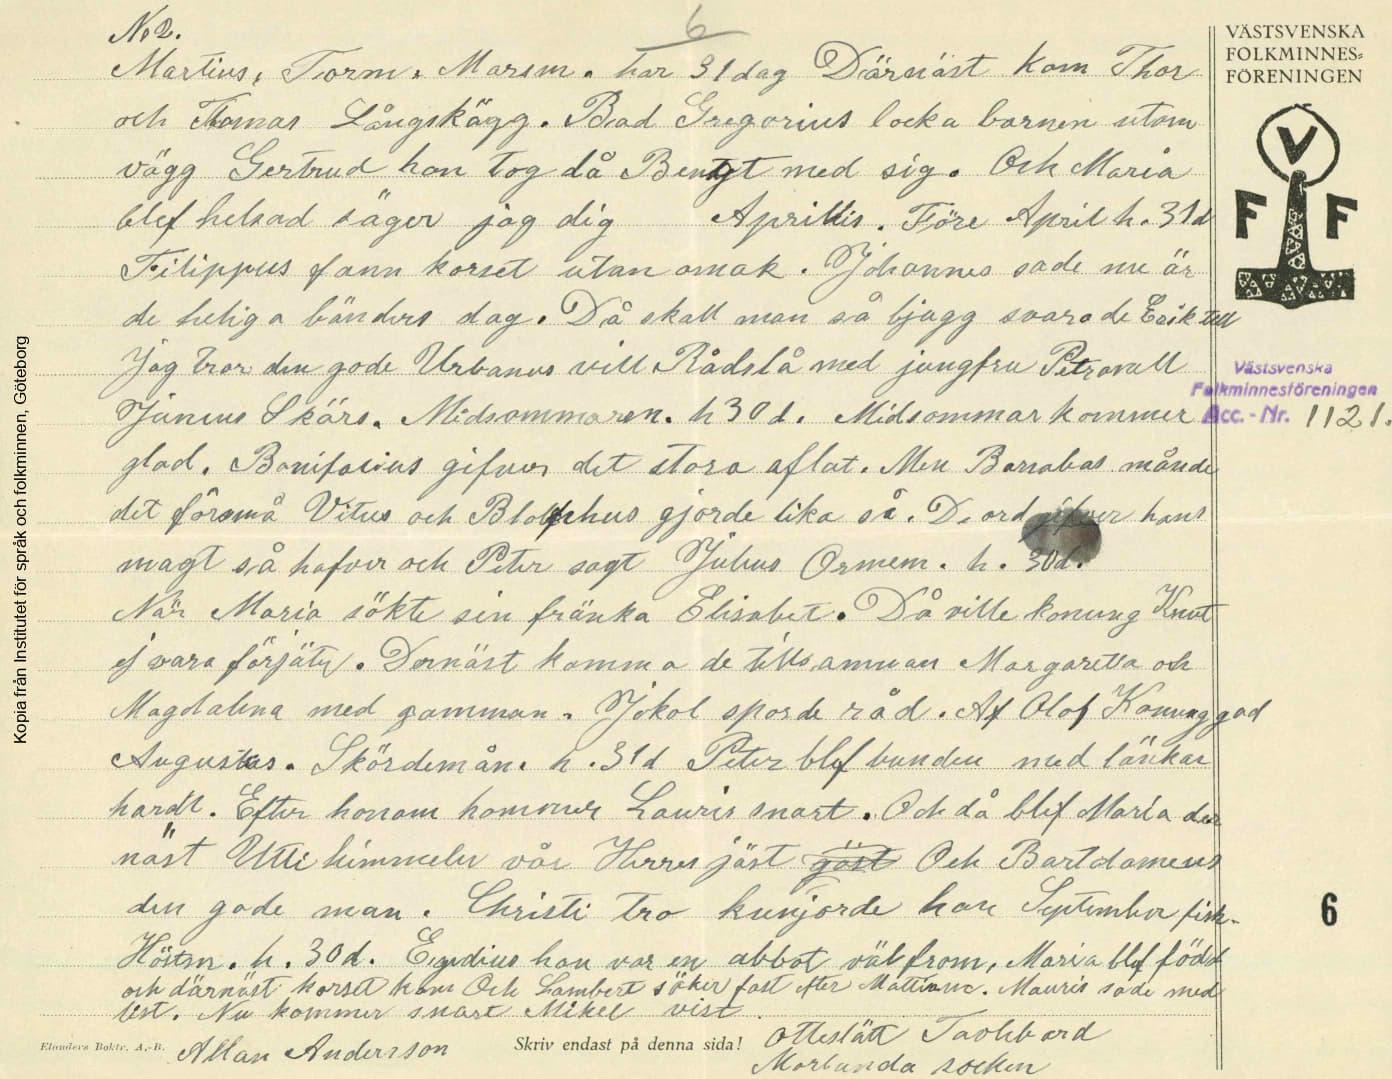 No 2.
6
Martius, Torm. Marsm. har 31 dag Därnäst kom Thor
och Tomas Långskägg. Bad Gregorius locka barnen utom
vägg Gertrud hon tog då Bengt med sig. Och Maria
blef helsad säger jag dig Aprillis. Före April h. 31 d
Filippus fann korset utan omak. Johannes sade nu är
de heliga bänders dag. Då skall man så bjugg svarade Erik till
Jag tror den gode Urbanus vill Rådslå med jungfru Petronall
Junius Skärs. Midsommaren. h 30 d. Midsommar kommer
glad. Bonifacius gifver det stora aflat. Men Barrabas månde
det försmå Vitus och gjorde lika så. De ord gifver hans
magt så hafver och Peter sagt Julius Ormem. h. 30d.
När Maria sökte sin fränka Elisabet. Då ville konung Knut
ej vara förjäty. Dernäst komma de tillsamman Margaretta och
Magdalena med gamman. Jokol sporde råd. Af Olof Konung god
Augustus. Skördemån. h. 31 d Peter blef bunden med länkar
hardt. Efter honom kommer Lauris snart. Och då blef Maria der
näst Utti himmelen vår Herres jäst gäst Och Bartolomeus
den gode man. Christi tro kunjorde han September fisk-
Höstm. h. 30 d. Egidius han var en abbot väl from, Maria blef född
och därnäst korset kom Och Lambert söker fast efter Mattians. Mauris sade med
list. Nu kommer snart Mikel vist
Allan Andersson
Otteslätt
Morlanda socken
Elanders Boktr. A.-B.
Skriv endast på denna sida!
VÄSTSVENSKA
FOLKMINNES=
FÖRENINGEN
V
F F
Västsvenska
Folkminnesföreningen
Acc. - Nr. 1121.
6
Kopia från Institutet för språk och folkminnen, Göteborg